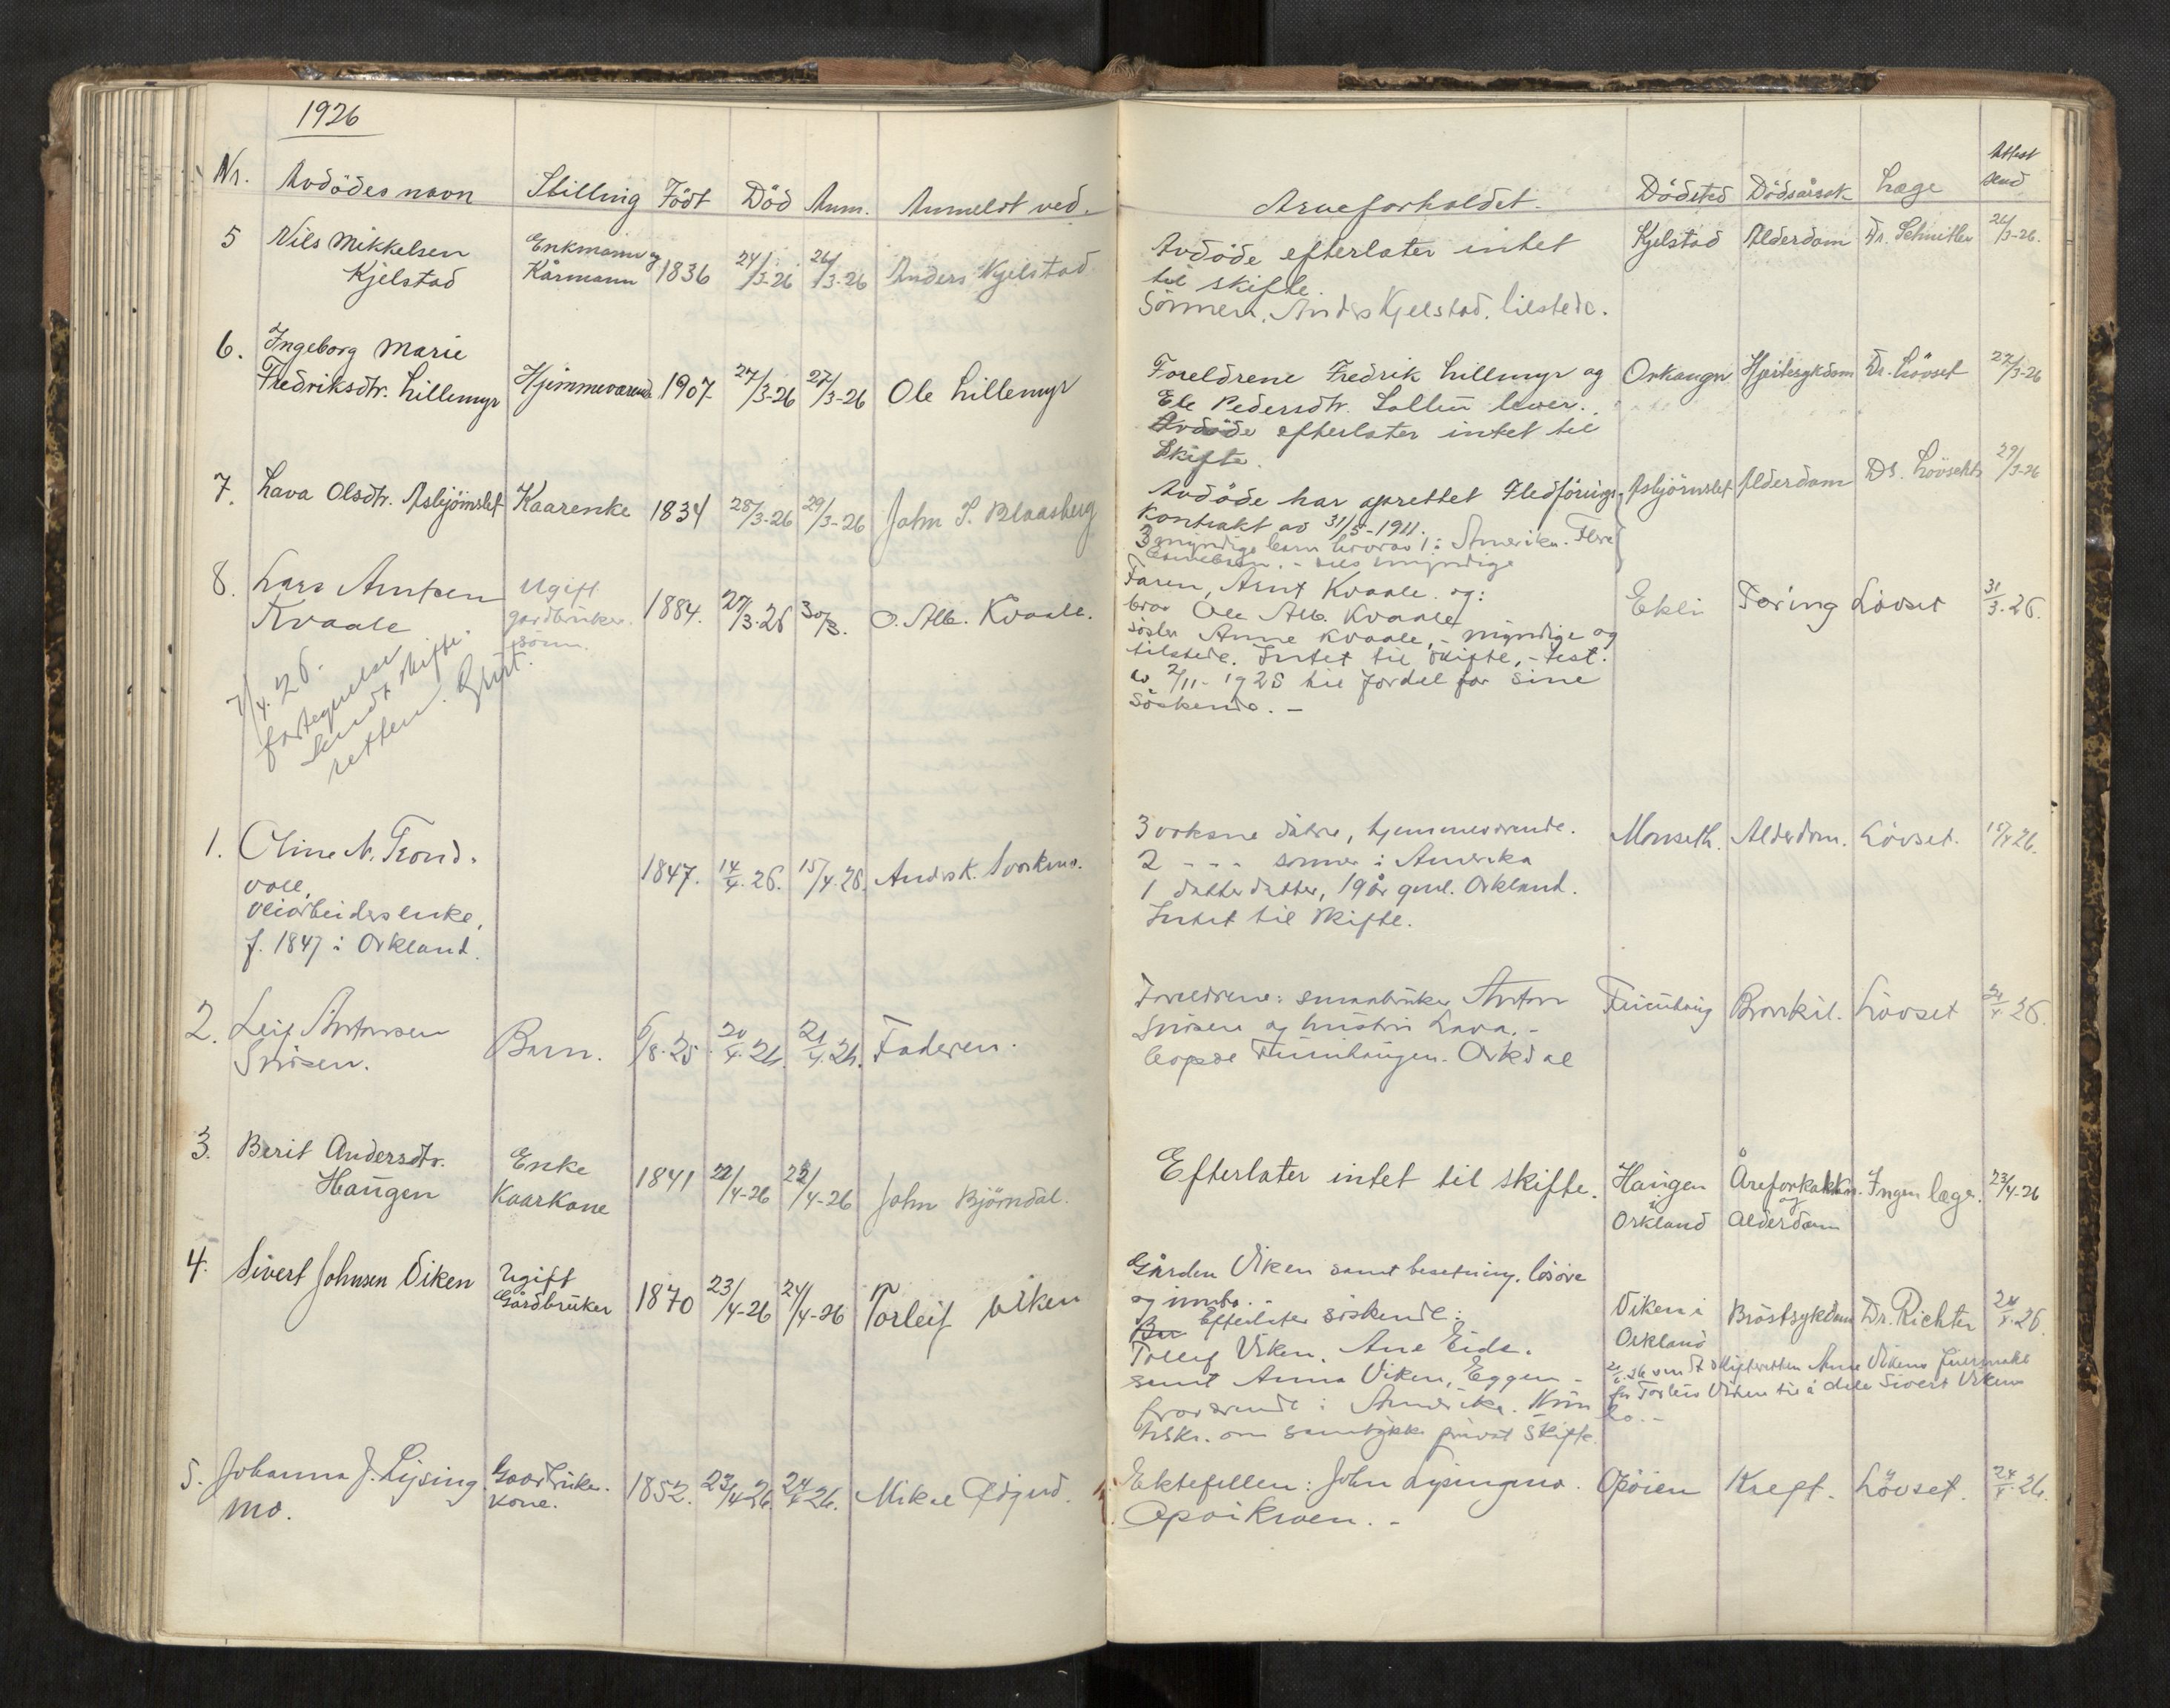 1926
Nr. Avdödes navn Stilling Födt Död Anm. Anmeldt ved. Arveforholdet. Dödsted Dödsårsak Læge Attest send
5 Nils Mikkelsen Kjelstad
Enkmann og Kårmann
1836 24/3-26 26/3-26 Anders Kjelstad
Avdöde efterlater intet
til skifte.
Sönnen, Anders Kjelstad, tilstede.
Kjelstad Alderdom Dr. Schnitler 26/3-26.
6. Ingeborg Marie
Fredriksdtr. Lillemyr
Hjemmeværende 1907 27/3-26 27/3-26 Ole Lillemyr
Foreldrene Fredrik Lillemyr og
Pedersdtr. lever.
Avdöde efterlater intet til
Skifte.
Orkanger Hjertesykdom Dr. Lövset 27/3-26
7. Lava Olsdtr. Asbjörnslet Kaarenke 1834 28/3-26 29/3-26 John S. Blaasberg
Avdöde har oprettet Fledförings-
kontrakt av 31/5-1911.
3 myndige barn hvorav 1 i Amerika. Flere
barnebarn. - alle myndige
Asbjörnslet Alderdom Dr. Lövseth 29/3-26
8. Lars Arntsen
Kvaale
Ugift
gardbruker
sönn.
1884. 27/3.26 30/3. O. Alb. Kvaale.
Faren, Arnt Kvaale og:
bror Ole Alb. Kvaale
söster Anne Kvaale, - myndige og
tilstede. Intet til skifte, - test.
av 2/11-1925 til fordel for sine
söskende. -
Ekli Tæring Lövset 31/3.26.
7/4.26.
fortegnelse
sendt skifte
retten.
1. Oline N. Trond-
voll,
veiarbeidersenke,
f. 1847 i Orkland.
1847. 14/4.26. 15/4.26. Anders K. Svorkmo.
3 voksne døtre, hjemmeværende.
2 - - - sønner i Amerika
1 datterdatter, 19 år gml. Orkland.
Intet til skifte.
Monseth. Alderdom. Lövset. 15/4 26.
2. Leif Antonsen
Snösen.
Barn. 6/8.25. 20/4.26. 21/4.26. Faderen.
Foreldrene: smaabruker Anton
Snösen og hustru Lava. -
Orkdal
Bronkit. Lövset 21/4.26.
3. Berit Andersdtr.
Haugen
Enke
Kaarkone
1841 22/4-26 22/4-26 John Björndal.
Efterlater intet til skifte.
Haugen
i
Orkland
Åreforkalkn.
og
Alderdom
Ingen læge. 23/4-26
4. Sivert Johnsen Viken
Ugift
Gårdbruker
1870 23/4-26 24/4-26 Torleif Viken
Gården Viken samt besetning, lösöre
og innbo. -
Efterlater söskende:
Tollef Viken, Ane Eide.
samt Anna Viken, Eggen -
fraværende i Amerika. Kun
tilskr. om samtykke privat skifte.
Viken i
Orkland
Bröstsykdom Dr. Richter 24/4.26.
skifteretten Anne Vikens fuldmakt
for Torleif Viken til å dele Sivert Vikens
bo. -
5. Johanna J. Lysing
mo.
Gaardbruker-
kone.
1852. 23/4 26. 24/4 26. Mikal Ødgård.
Ektefellen: John Lysingmo.
Opöien Kreft. Lövset. 24/4.26.